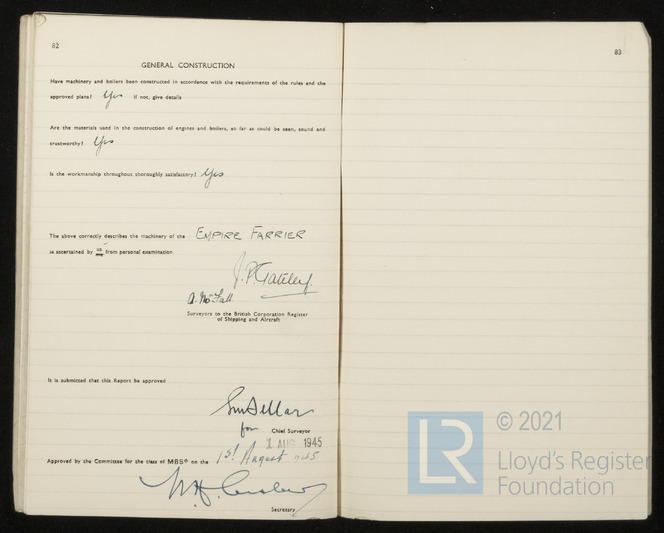 82
GENERAL CONSTRUCTION
Have machinery and boilers been constructed in accordance with the requirements of the rules and the
approved plans? Yes If not, give details
Are the materials used in the construction of engines and boilers, so far as could be seen, sound and
trustworthy? Yes
Is the workmanship throughout thoroughly satisfactory? Yes
The above correctly describes the machinery of the EMPIRE FARRIER
as ascertained by us from personal examination
A. McFall
Surveyors to the British Corporation Register
of Shipping and Aircraft
It is submitted that this Report be approved
for Chief Surveyor
1 AUG 1945
Approved by the Committee for the class of MBS* on the 1st August 1945
Secretary
83
LR
© 2021
Lloyd's Register
Foundation